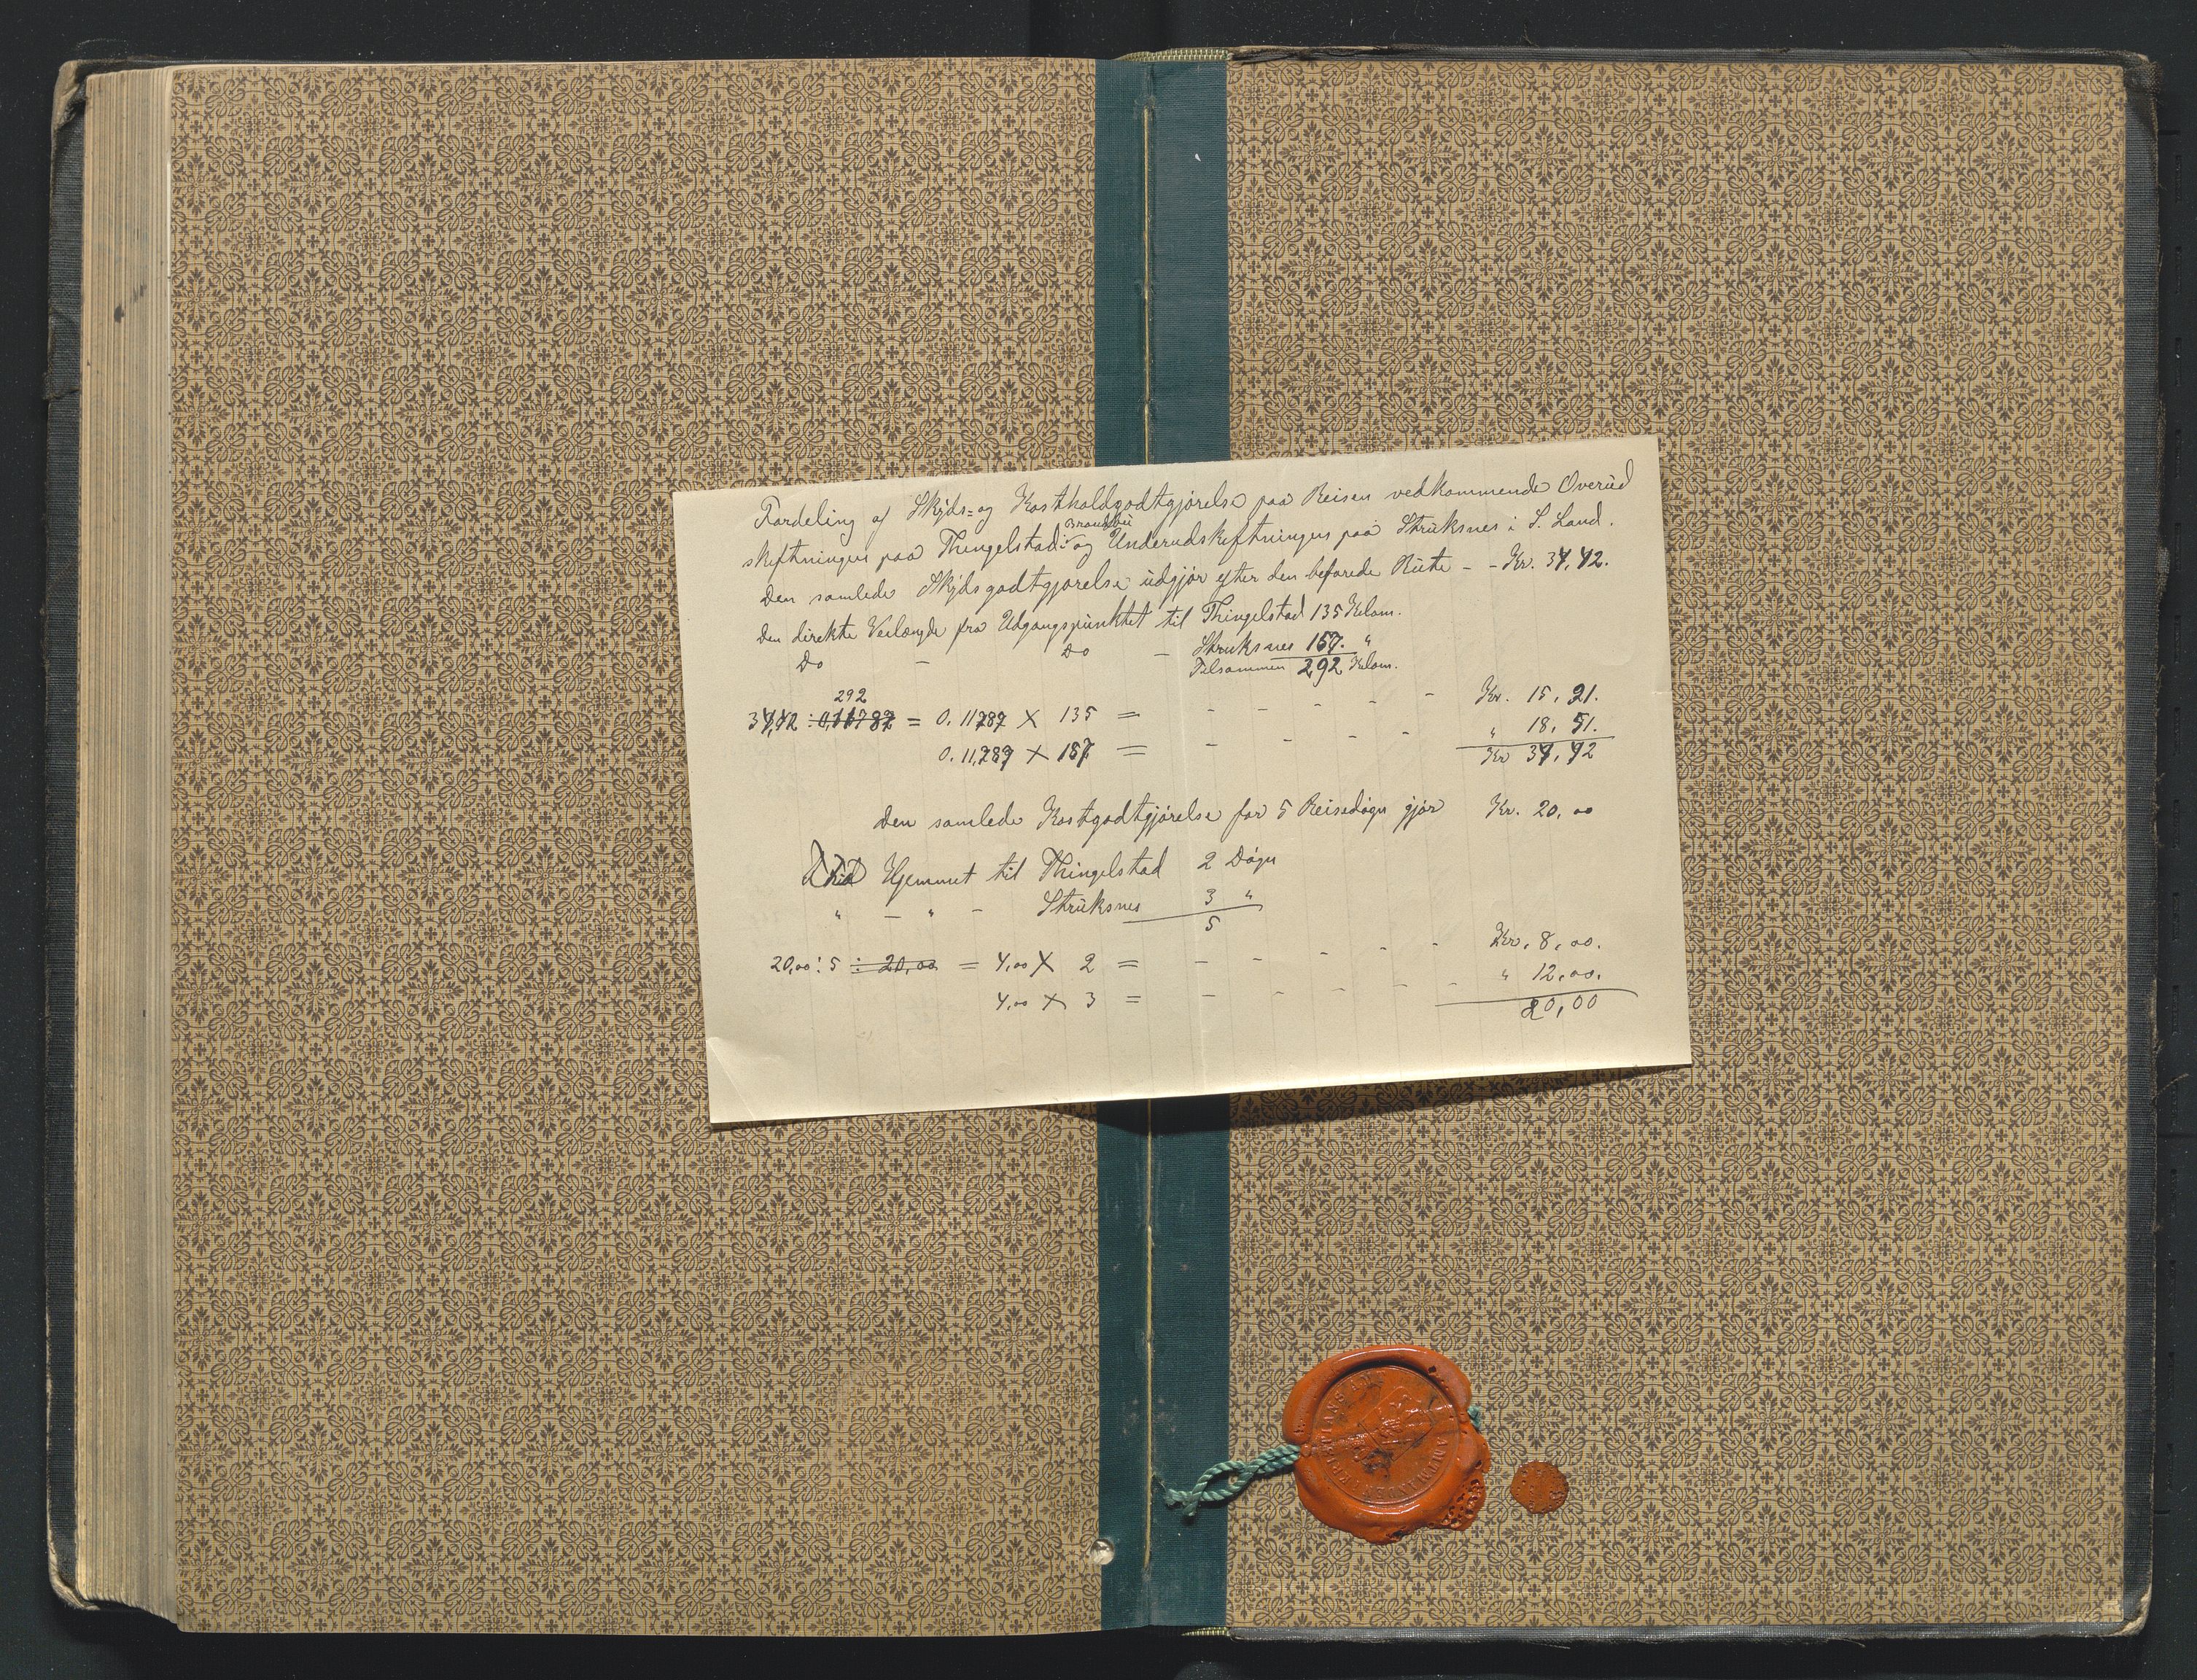 Fordeling af Skyds= og Kostholdsgodtgjørelse paa Reisen vedkommende Overud
Brandbu
skiftningen paa Thingelstad og Underudskiftningen paa Struksnes i S. Land.
Den samlede Skydsgodtgjørelse udgjør efter den befarede Rute - - Kr. 34,42.
Den direkte Veilængde fra Udgangspunktet til Thingelstad 135 Kilom.
Do - Do - Struksnes 157. "
Tilsammen 292 Kilom.
292
34,42 : = 0.11787 X 135 = - - - - - Kr. 15,91.
0.11787 X 157 = - - - - " 18,51.
Kr 34,42
Den samlede Kostgodtgjørelse for 5 Reisedøgn gjør Kr. 20,00
Hjemmet til Thingelstad 2 Døgn
" - " - Struksnes 3 "
5
20,00 : 5 : 20,00 = 4,00 X 2 = - - - - - Kr. 8,00.
4,00 X 3 = - - - - - " 12,00.
20,00